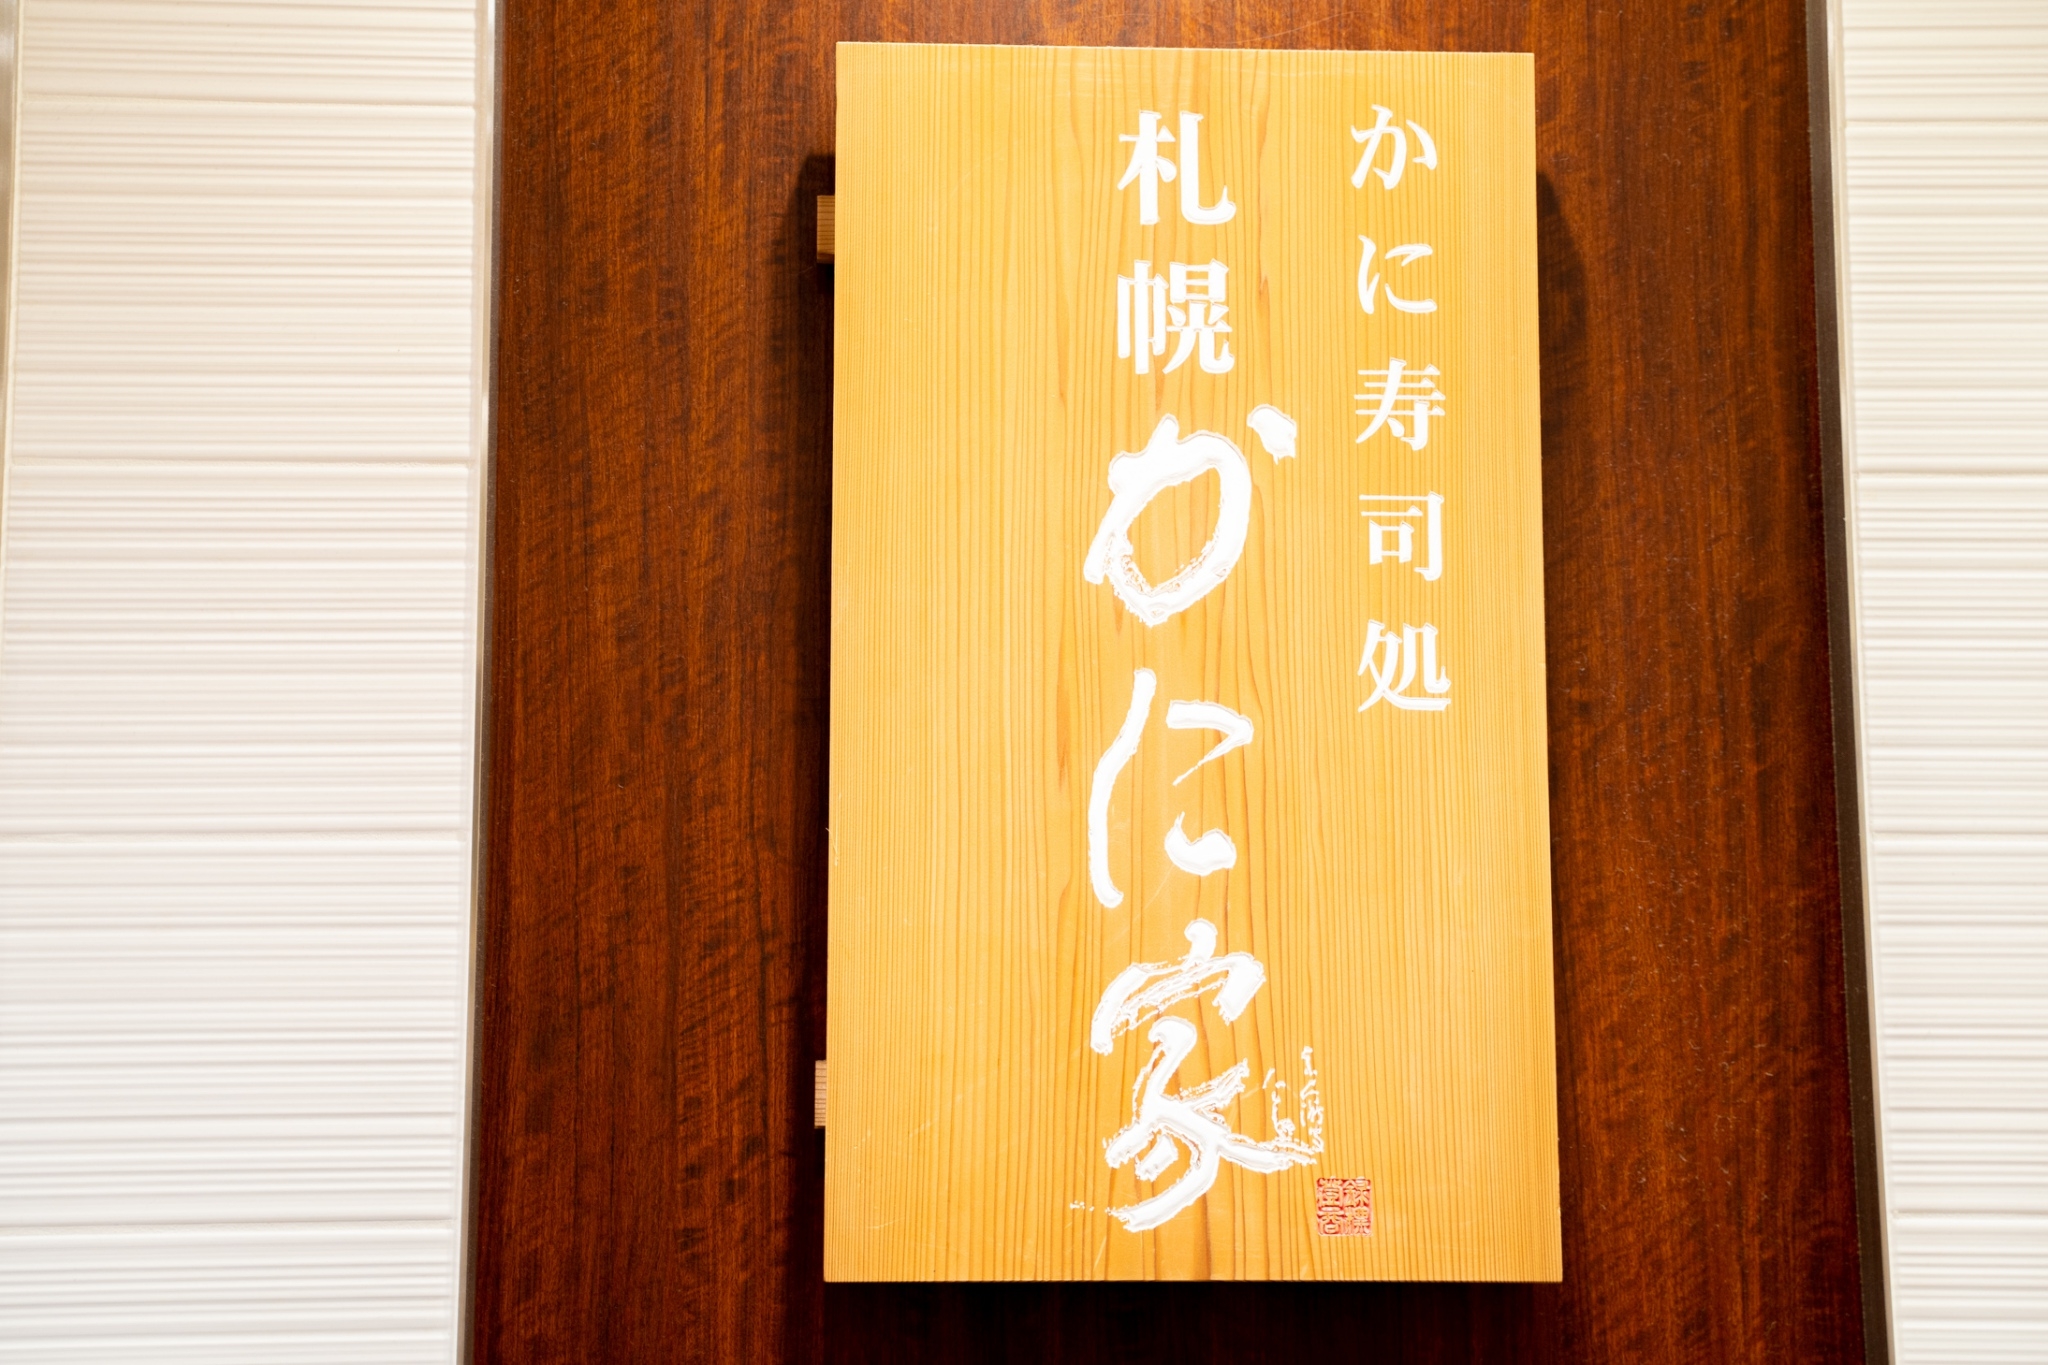 かに寿司処
札幌かに家